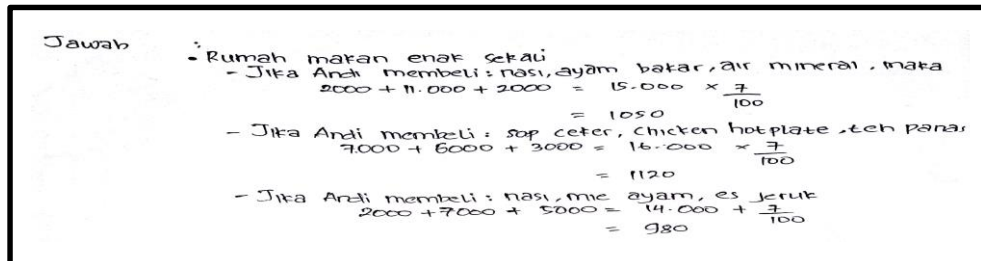 Jawab :
• Rumah makan enak sekali
- Jika Andi membeli : nasi, ayam bakar, air mineral, maka
2000 + 11.000 + 2000 = 15.000 × 7/100
= 1050
- Jika Andi membeli : sop ceker, chicken hotplate, teh panas
7.000 + 6000 + 3000 = 16.000 × 7/100
= 1120
- Jika Andi membeli : nasi, mie ayam, es jeruk
2000 + 7000 + 5000 = 14.000 + 7/100
= 980